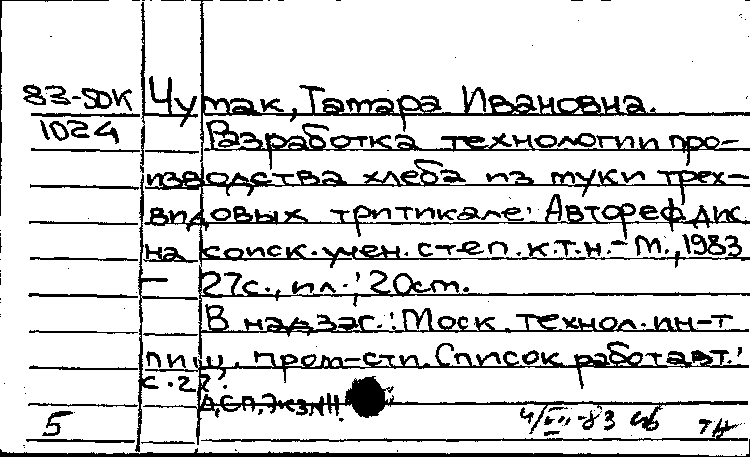 83-5DK Чумак, Тамара Ивановна.
1024 Разработка технологии про-
изводства хлеба из муки трех-
видовых тритикале: Автореф дис
на соиск. учен. степ. к.т.н. - М., 1983
- 27с., ил.; 20см.
В надзаг.: Моск. технол. ин-т
пищ. пром-сти. Список работ авт.:
с. 27.
ДСП, Экз.
5